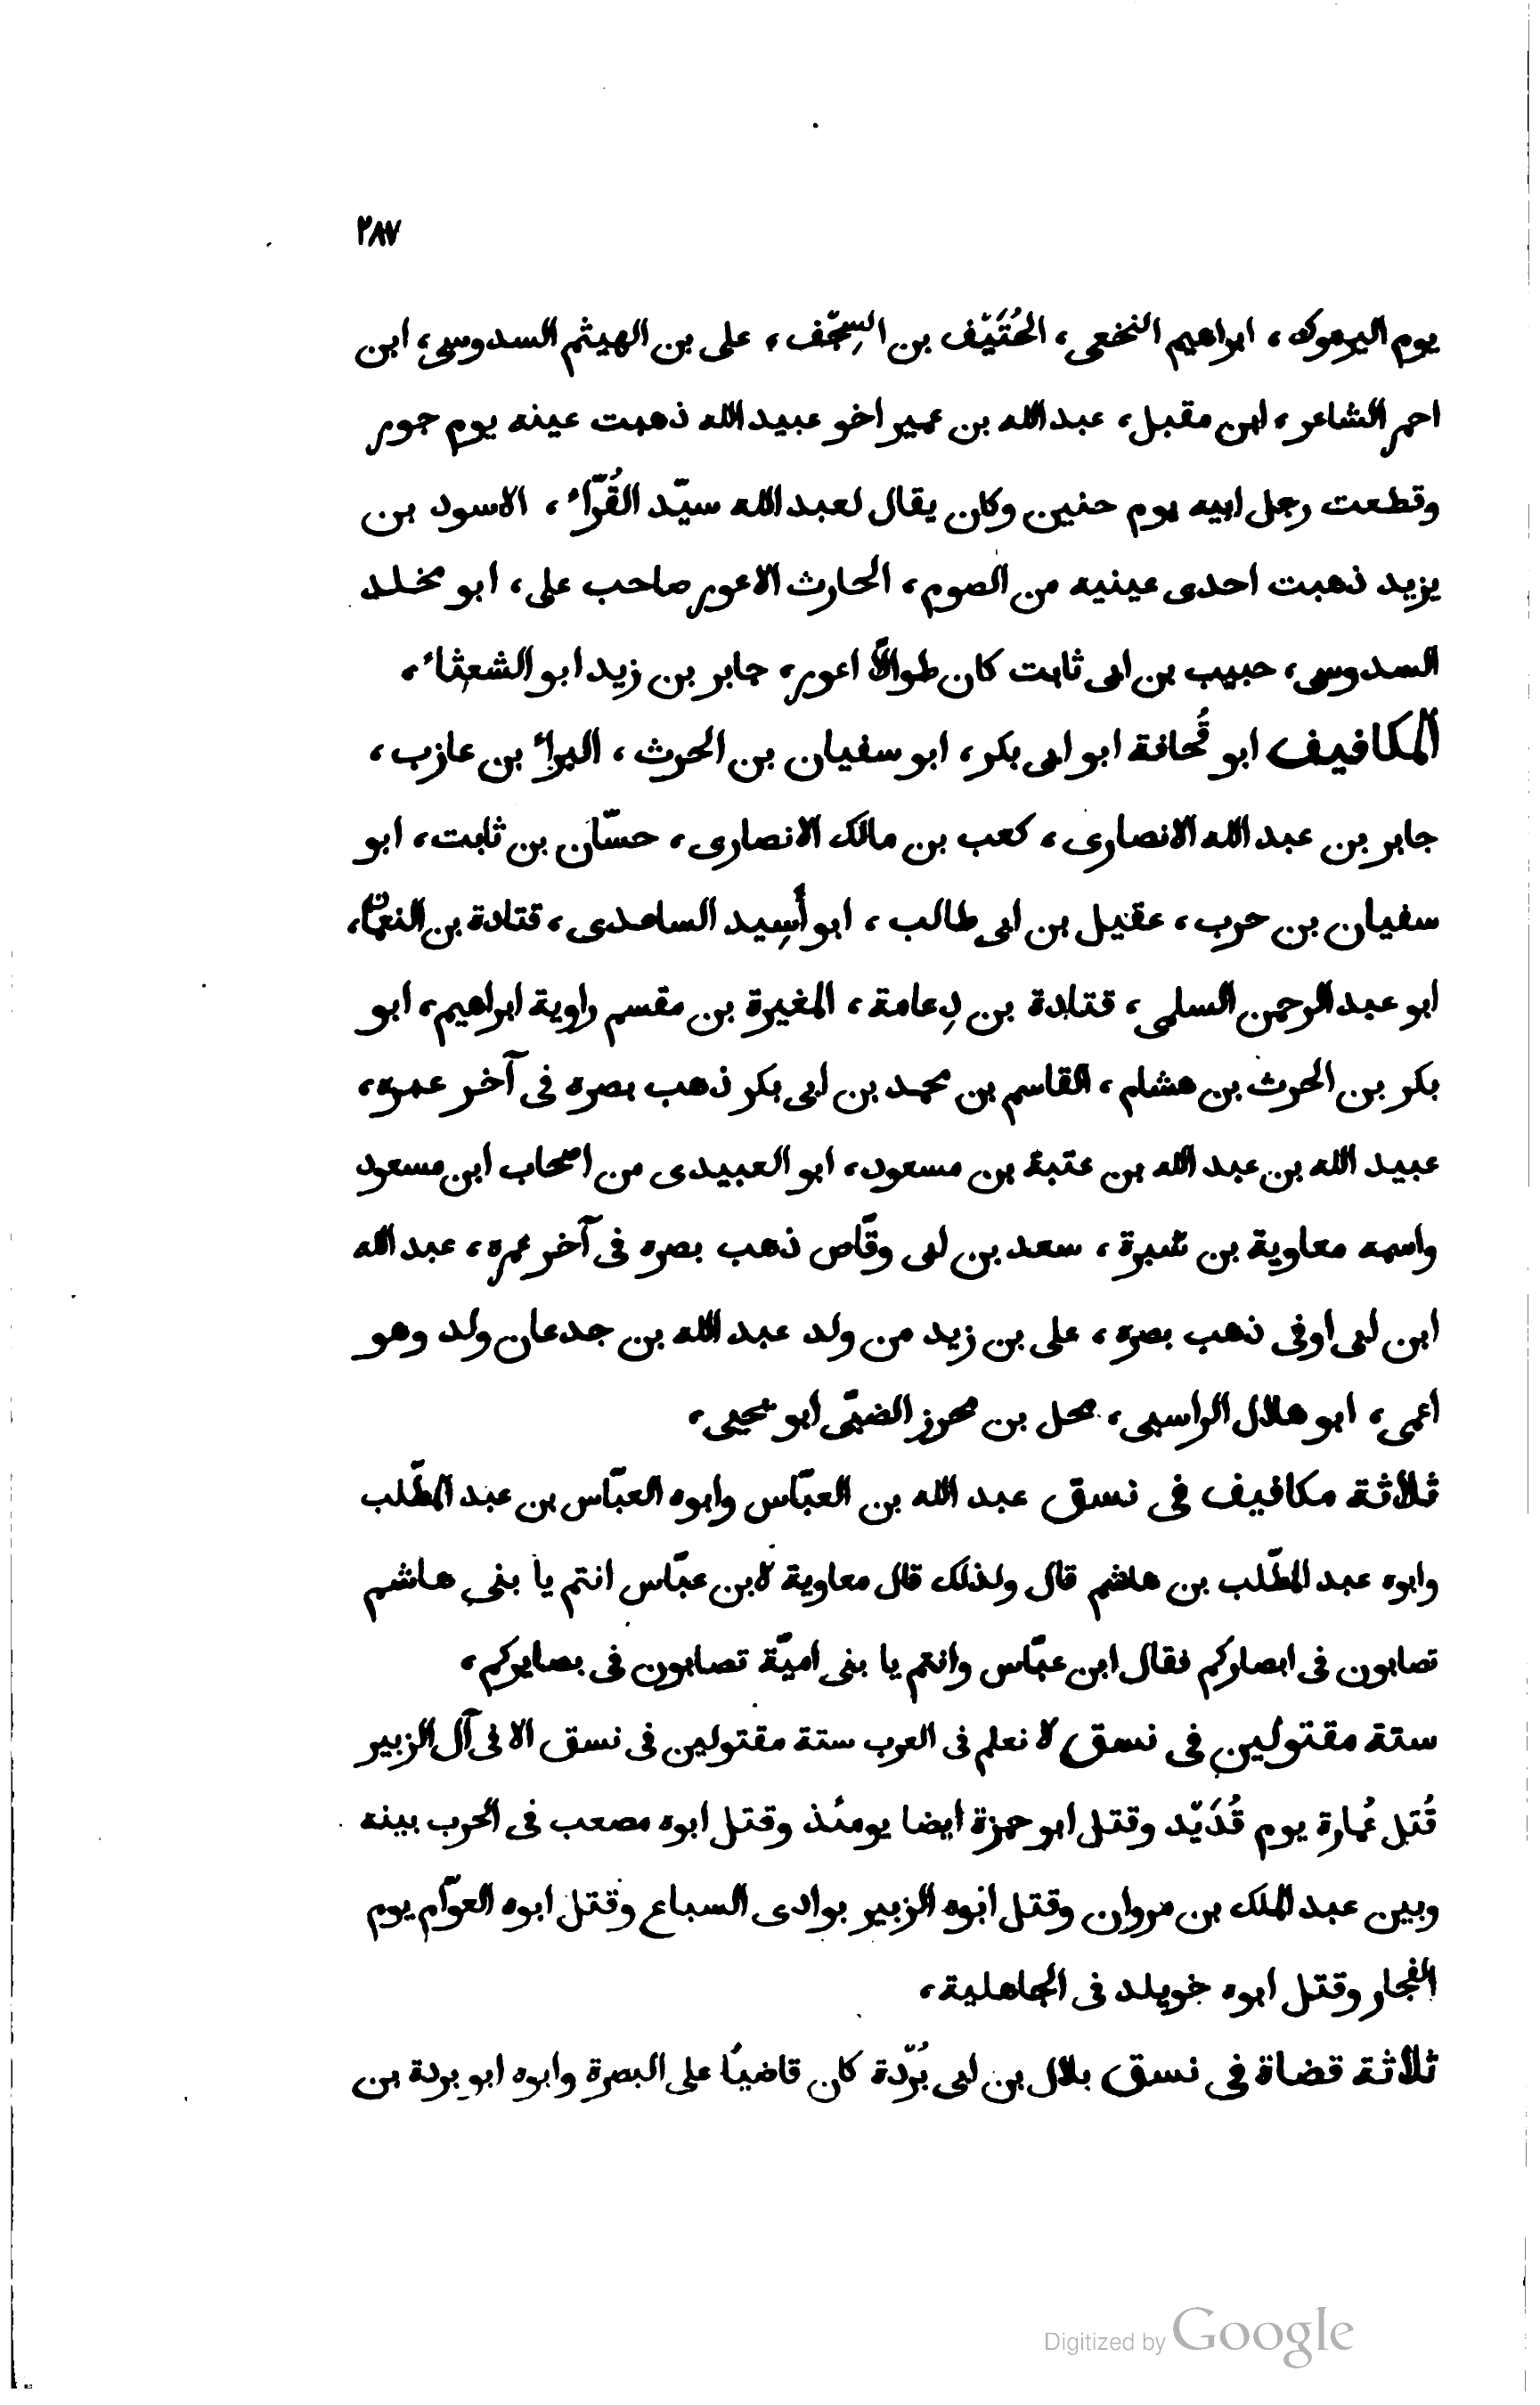 ٢٨٧
يوم اليرموك، ابراهيم النخعى، الحُتَيّف بن السِجّف، على بن الهيثم السدوسى، ابن
احمر الشاعر، ابن مقبل، عبد الله بن عمير اخو عبيد الله ذهبت عينه يوم جور
وقطعت رجل ابيه يوم حنين وكان يقال لعبد الله سيّد القُرّآء، الاسود بن
يزيد ذهبت احدى عينيه من الصوم، الحارث الاعور صاحب على، ابو مخلد
السدوسى، حبيب بن ابى ثابت كان طوالًا اعور، جابر بن زيد ابو الشعثاء،
المكافيف ابو قُحافة ابو ابى بكر، ابو سفيان بن الحرث، البراء بن عازب،
جابر بن عبد الله الانصارى، كعب بن مالك الانصارى، حسّان بن ثابت، ابو
سفيان بن حرب، عقيل بن ابى طالب، ابو أُسِيد الساعدى، قتادة بن النعمان،
ابو عبد الرحمن السلمى، قتادة بن دِعامة، المغيرة بن مقسم راوية ابراهيم، ابو
بكر بن الحرث بن هشام، القاسم بن محمد بن ابى بكر ذهب بصره فى آخر عمره،
عبيد الله بن عبد الله بن عتبة بن مسعود، ابو العبيدى من اصحاب ابن مسعود
واسمه معاوية بن سبرة، سعد بن ابى وقّاص ذهب بصره فى آخر عمره، عبد الله
ابن ابى اوفى ذهب بصره، على بن زيد من ولد عبد الله بن جدعان ولد وهو
اعمى، ابو هلال الراسبى، محل بن محرز الضبّى ابو يحيى،
ثلاثة مكافيف فى نسق عبد الله بن العبّاس وابوه العبّاس بن عبد المطّلب
وابوه عبد المطّلب بن هاشم قال ولذلك قال معاوية لابن عبّاس انتم يا بنى هاشم
تصابون فى ابصاركم فقال ابن عبّاس وانتم يا بنى اميّة تصابون فى بصايركم،
ستة مقتولين فى نسق لا نعلم فى العرب ستة مقتولين فى نسق الا فى آل الزبير
قُتل عُمارة يوم قُدَيّد وقتل ابو حمزة ايضا يومئذ وقتل ابوه مصعب فى الحرب بينه
وبين عبد الملك بن مروان وقتل ابوه الزبير بوادى السباع وقتل ابوه العوّام يوم
الفجار وقتل ابوه خويلد فى الجاهلية،
ثلاثة قضاة فى نسق بلال بن ابى بُرّدة كان قاضيًا على البصرة وابوه ابو بردة بن
Digitized by Google